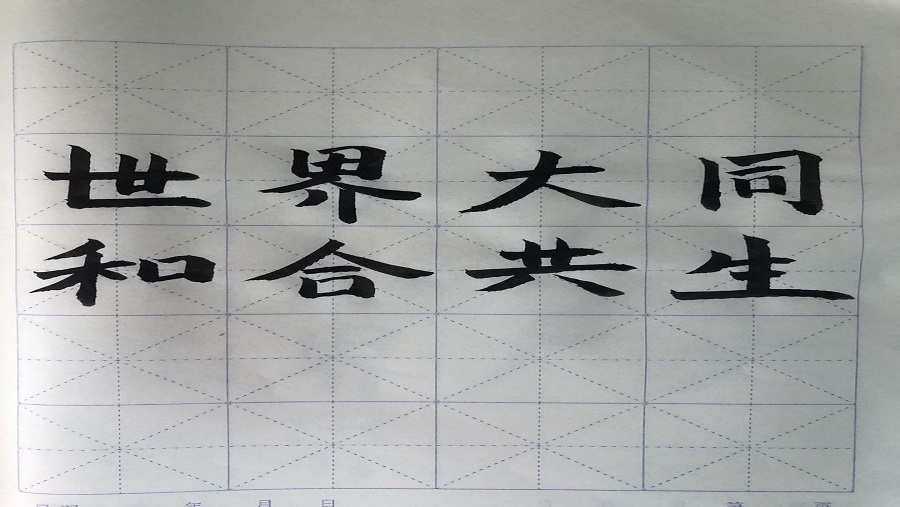 世界大同
和合共生
年 月 日 第 页